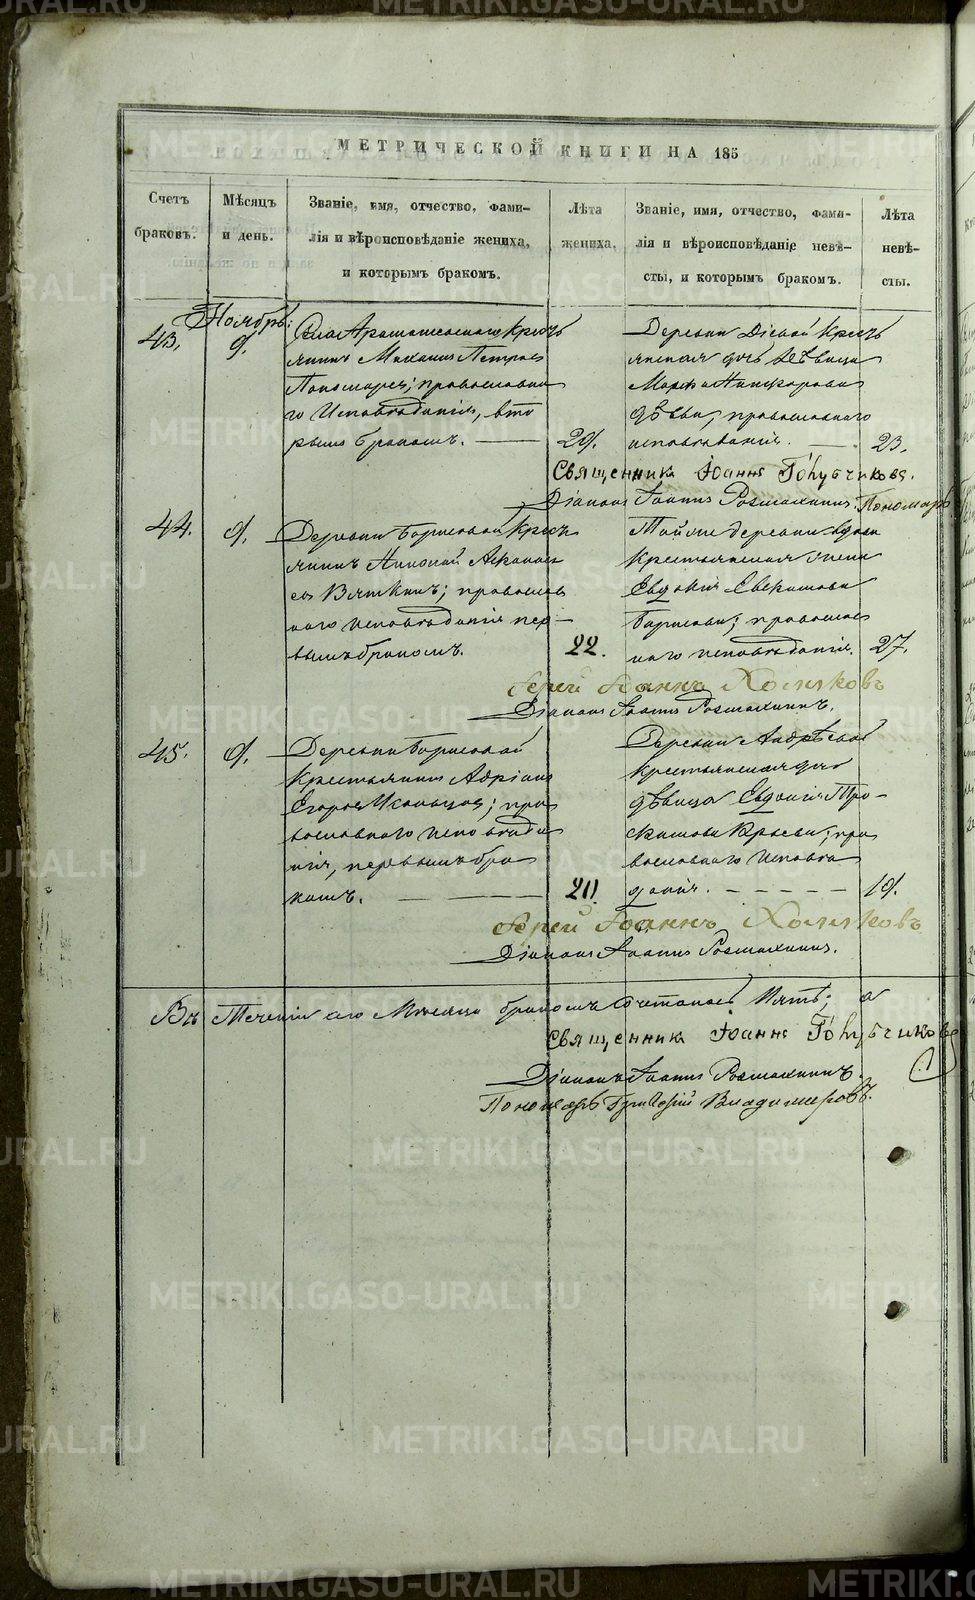 МЕТРИЧЕСКОЙ КНИГИ НА 185
Счетъ браковъ.
Мѣсяцъ и день.
Званіе, имя, отчество, фами-
лія и вѣроисповѣданіе жениха,
и которымъ бракомъ.
Лѣта жениха.
Званіе, имя, отчество, фами-
лія и вѣроисповѣданіе невѣ-
сты, и которымъ бракомъ.
Лѣта невѣ-
сты.
Ноябрь.
43.
9.
Села Арамашевскаго Крестъ
янинъ Михаилъ Петровъ
Пономаревъ; православна
го Исповѣданія, вто
рымъ бракомъ.
29.
Деревни Діевой Кресть
янская дочь дѣвица
Марфа Никифорова
православнаго
исповѣданія.
23.
Священникъ Іоаннъ Голубчиковъ.
Діаконъ Іоаннъ Розмахнинъ. Пономарь
44.
9.
Деревни Борисовой Кресть
янинъ Николай
въ Вяткинъ; православ
наго исповѣданія пер-
вымъ бракомъ.
22.
Той же деревни вдова
Крестьянская жена
Евдокія
православ
наго исповѣданія.
27.
Іерей Іоаннъ Холмяковъ
Діаконъ Іоаннъ Розмахнинъ.
45.
9.
Деревни Борисовой
Крестьянинъ Адріанъ
Егоровъ пра
вославнаго исповѣда
нія, первымъ бра
комъ.
20.
Деревни Андрѣевой
крестьянская дочь
дѣвица Евдокія Тро-
фимова пра
вославнаго исповѣ
данія.
19.
Іерей Іоаннъ Холмяковъ
Діаконъ Іоаннъ Розмахнинъ.
Въ Теченіи сего Мѣсяца бракомъ сочеталось Пять; а
Священникъ Іоаннъ Голубчиковъ
Діаконъ Іоаннъ Розмахнинъ.
Пономарь Григорій Владимировъ.
METRIKI.GASO-URAL.RU